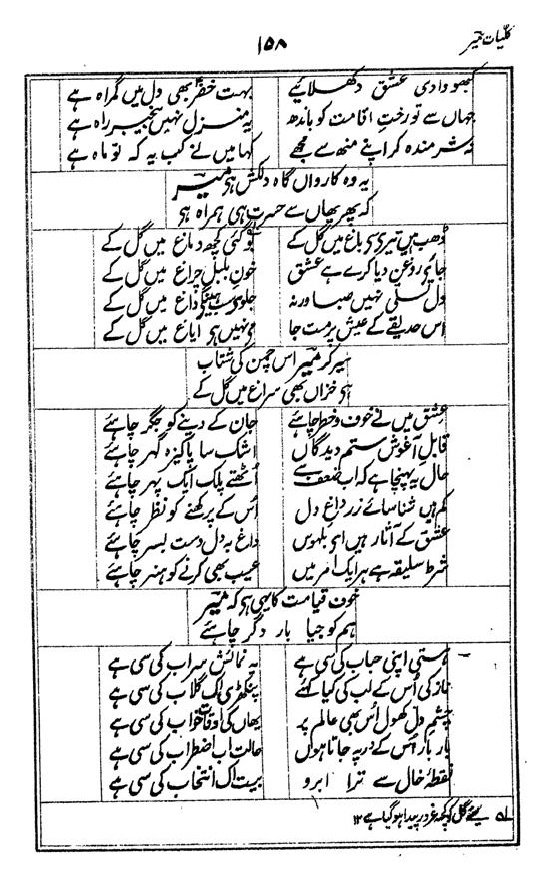 کلیات میر
۱۵۸
کبھو وادی عشق دکھلائیے بہت خضر بھی دل میں گمراہ ہے
جہاں سے تو رختِ اقامت کو باندھ یہ منزل نہیں بیخبر راہ ہے
نہ شرمندہ کر اپنے منھ سے مجھے کہا میں نے کب یہ کہ تو ماہ ہے
یہ وہ کارواں گاہ دلکش ہے میر
کہ پھر یہاں سے حسرت ہی ہمراہ ہے
ڈھب ہیں تیری سی باغ میں گل کے بو گئی کچھ دماغ میں گل کے
جائی روغن دیا کرے ہے عشق خونِ بلبل چراغ میں گل کے
دل تسلی نہیں صبا ورنہ جلوے سب ہینگے داغ میں گل کے
اس حدیقے کے عیش پر مت جا می نہیں ہی ایاغ میں گل کے
سیر کر میر اس چمن کی شتاب
ہی خزاں بھی سراغ میں گل کے
عشق میں نے خوف و خطر چاہئے جان کے دینے کو جگر چاہئے
قابلِ آغوش ستم دیدگاں اشک سا پاکیزہ گہر چاہئے
حال یہ پہنچا ہے کہ اب ضعف سے اُٹھتے پلک ایک پہر چاہئے
کم ہیں شناسائے زرِ داغِ دل اُس کے پرکھنے کو نظر چاہئے
عشق کے آثار ہیں ای بلہوس داغ بہ دل دست بسر چاہئے
شرط سلیقہ ہے ہر ایک امر میں عیب بھی کرنے کو ہنر چاہئے
خوف قیامت کا یہی ہی کہ میر
ہم کو جیا بار دگر چاہئے
ہستی اپنی حباب کی سی ہے یہ نمائش سراب کی سی ہے
نازکی اُس کے لب کی کیا کہئے پنکھڑی اک گلاب کی سی ہے
چشمِ دل کھول اُس بھی عالم پر یھاں کی اوقات خواب کی سی ہے
بار بار اُس کے در پہ جاتا ہوں حالت اب اضطراب کی سی ہے
نقطۂ خال سے ترا ابرو بیت اک انتخاب کی سی ہے
۱ یعنے گل کو کچھ غرور پیدا ہو گیا ہے ۱۲